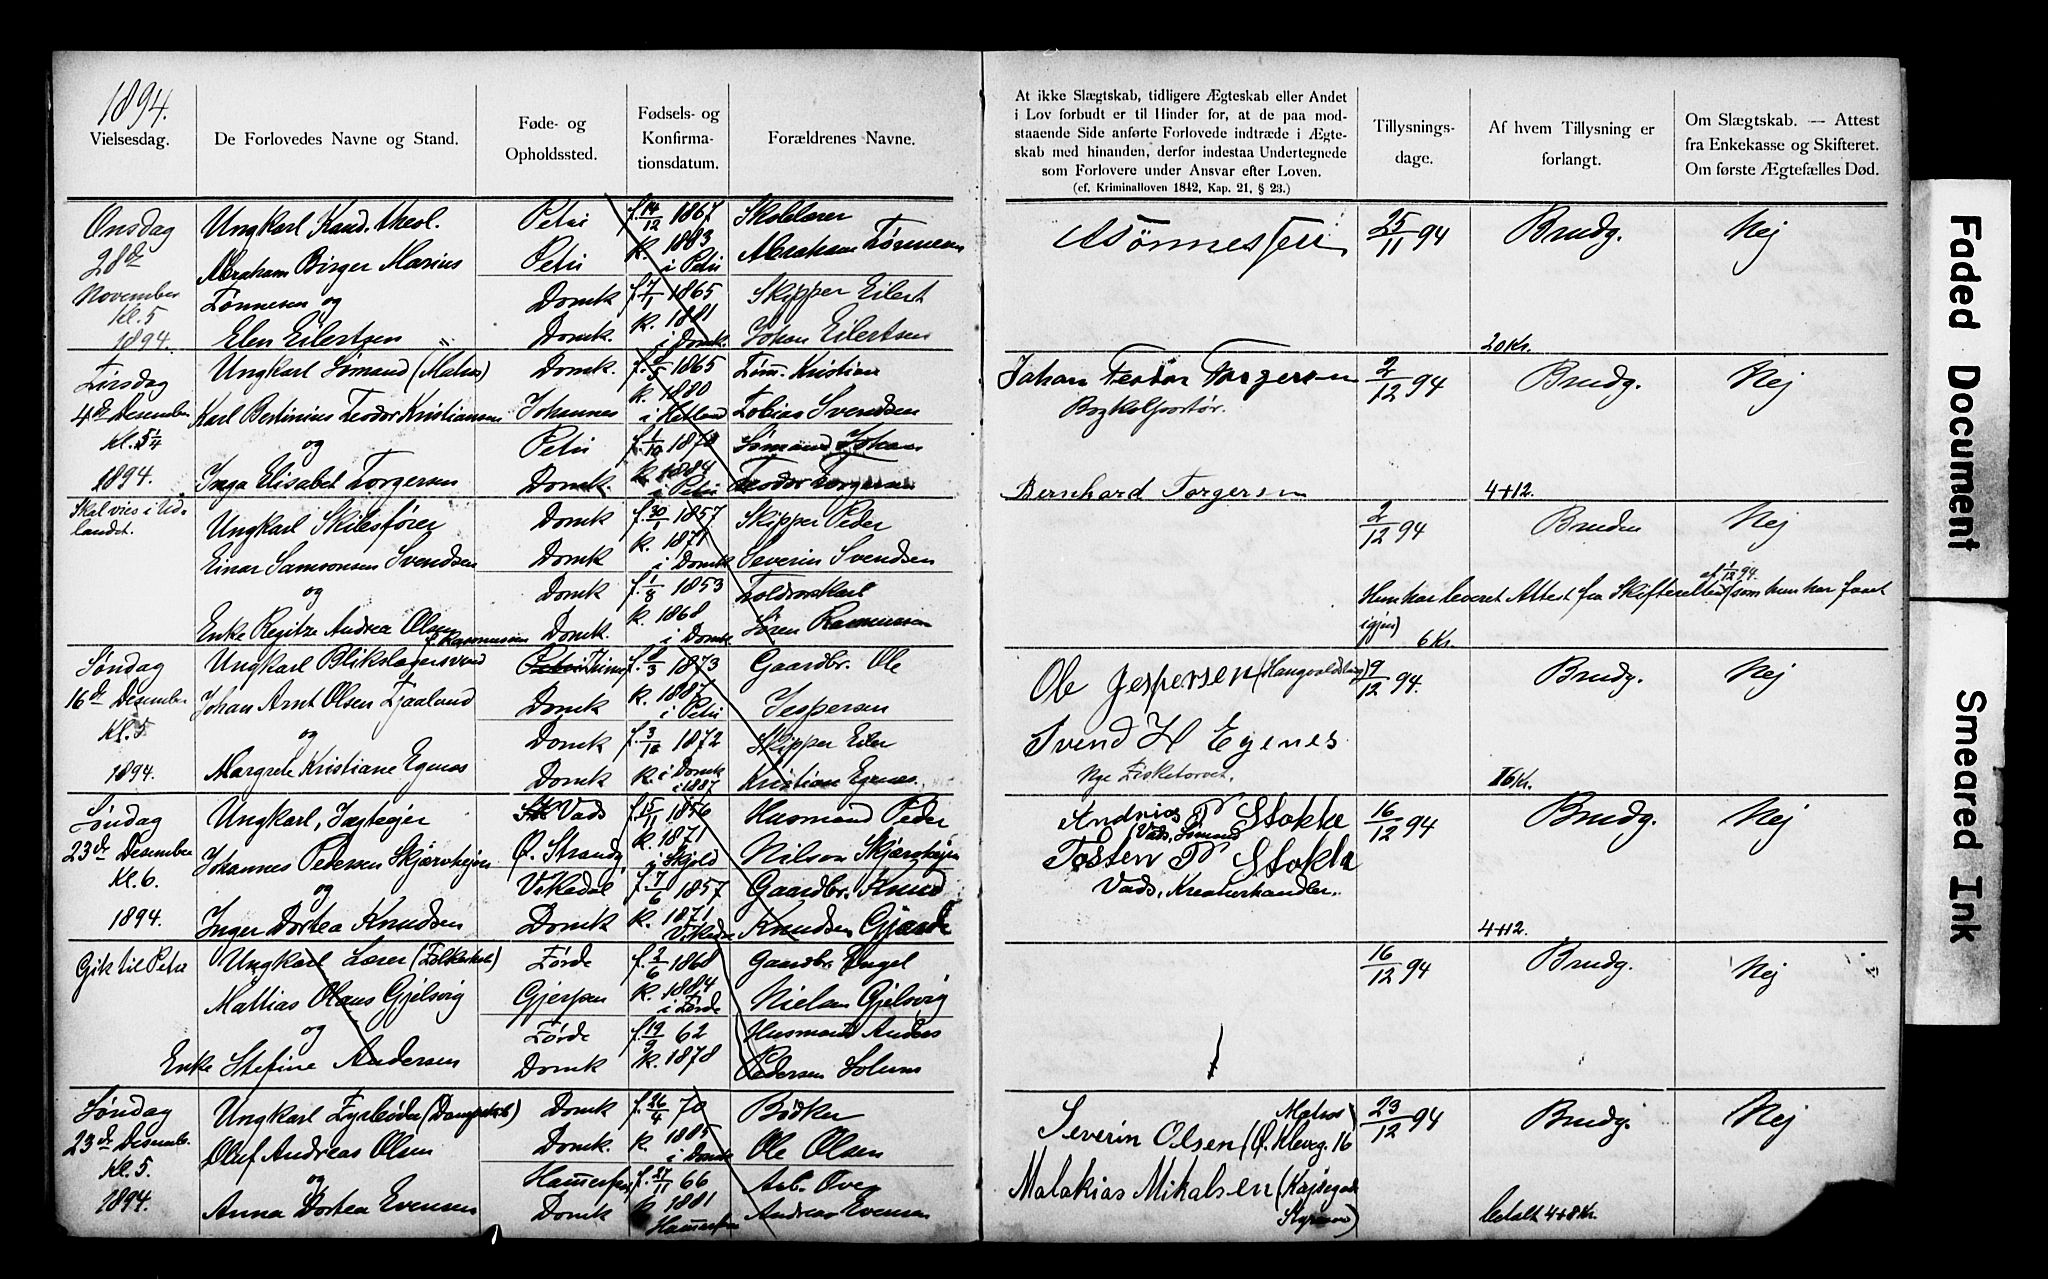 1894.
Vielsesdag.
De Forlovedes Navne og Stand.
Føde- og
Opholdssted.
Fødsels- og
Konfirma-
tionsdatum.
Forældrenes Navne.
At ikke Slægtskab, tidligere Ægteskab eller Andet
i Lov forbudt er til Hinder for, at de paa mod-
staaende Side anførte Forlovede indtræde i Ægte-
skab med hinanden, derfor indestaa Undertegnede
som Forlovere under Ansvar efter Loven.
(cf. Kriminalloven 1842, Kap. 21, § 23.)
Tillysnings-
dage.
Af hvem Tillysning er
forlangt.
Om Slægtskab. — Attest
fra Enkekasse og Skifteret.
Om første Ægtefælles Død.
Onsdag
28de
November
Kl. 5
1894.
Ungkarl Kand. theol.
Abraham Birger Marius
Tønnesen og
Elen Eilertsen
Petri
Petri
Domk
Domk.
f. 14/12 1867
k. 1883
i Petri
f. 7/1 1865
k. 1881
i Domk.
Skolelærer
Abraham Tønnesen
Skipper Eilert
Johan Eilertsen
ATønnessen
25/11 94
Brudg.
20 Kr.
Nej
Tirsdag
4de Desember
Kl. 5 1/4
1894.
Ungkarl Sømand (Matros)
Karl Bertinius Teodor Kristiansen
og
Inga Elisabet Torgersen
Domk.
Johannes
Petri
Domk.
1865
k. 1880
i Hetland
f. 1/10 1870
k. 1884
i Petri
Tøm. Kristian
Tobias Svendsen
Sømand Johan
Teodor Torgersen
Johan Teodor Torgersen
Bogkolportør.
Bernhard Torgersen
2/12 94
Brudg.
4+12.
Nej
Skal vies i Ud-
landet.
Ungkarl Skibsfører
Einar Samsonsen Svendsen
og
Enke Regitze Andrea Olsen
f. Rasmussen
Domk
Domk
Domk
Domk.
f. 30/1 1857
k. 1871
i Domk
f. 1/8 1853
k. 1868
i Domk
Skipper Peder
Severin Svendsen
Toldroskarl
Søren Rasmussen
2/12 94
Bruden
Nej
af 1/12 94.
Hun har leveret Attest fra Skifteretten (som hun har faaet
igjen)
6 Kr.
Søndag
16de Desember
Kl. 5
1894.
Ungkarl Blikslagersvend
Johan Arnt Olsen Tjaaland
og
Margrete Kristiane Egenes
Domk
Domk
Domk
f. 8/3 1873
k. 1887
i Petri
f. 3/10 1872
k. i Domk
i 1887
Gaardbr. Ole
Jespersen
Skipper Eiler
Kristian Egenes.
Ole Jespersen
Svend H Egenes
Nye Fisketorvet.
9/12 94.
Brudg.
16 Kr.
Nej
Søndag
23de Desember
Kl. 6.
1894.
Ungkarl, Jagteier
Johannes Pedersen Skjærshejen
og
Inger Dortea Knudsen
Vads
Ø. Strandg
Vikedal
Domk
f. 15/11 1856
k. 1871
i Skjold
f. 7/6 1857
k. 1871
Vikedal
Husmand Peder
Nilson Skjærshejen
Gaardbr. Knud
Knudsen Gjærde
Stokke
Vads, Sømand
Tosten P Stokke
Vads, Kreaturhandler.
16/12 94
Brudg.
4+12.
Nej
Gik til Petri
Ungkarl Lærer (Folkeskol)
Mattias Olaus Gjelsvig
og
Enke Stefine Andersen
Førde
Gjerpen
Førde
Domk
f. 3/6 1868
k. 1884
i Førde
f. 19/9 62
k. 1878
Gaardbr. Engel
Nielsen Gjelsvig
Husmand Anders
Pedersen Solem
16/12 94
Brudg.
Nej
Søndag
23de Desemb.
Kl. 5.
1894.
Ungkarl Fyrbøder (Dampskib)
Oluf Andreas Olsen
og
Anna Dortea Evensen
Domk
Domk.
Domk
f. 26/4 70
k. 1885
i Domk
f. 27/11 66
k. 1881
Bødker
Ole Olsen
Arb. Over
Andreas Evensen
Matros)
Severin Olsen (Ø. Kleveg. 16
Malakias Mikalsen (Kajsegade
23/12 94
Brudg.
betalt 4+8 Kr.
Nej
Faded Document
Smeared Ink